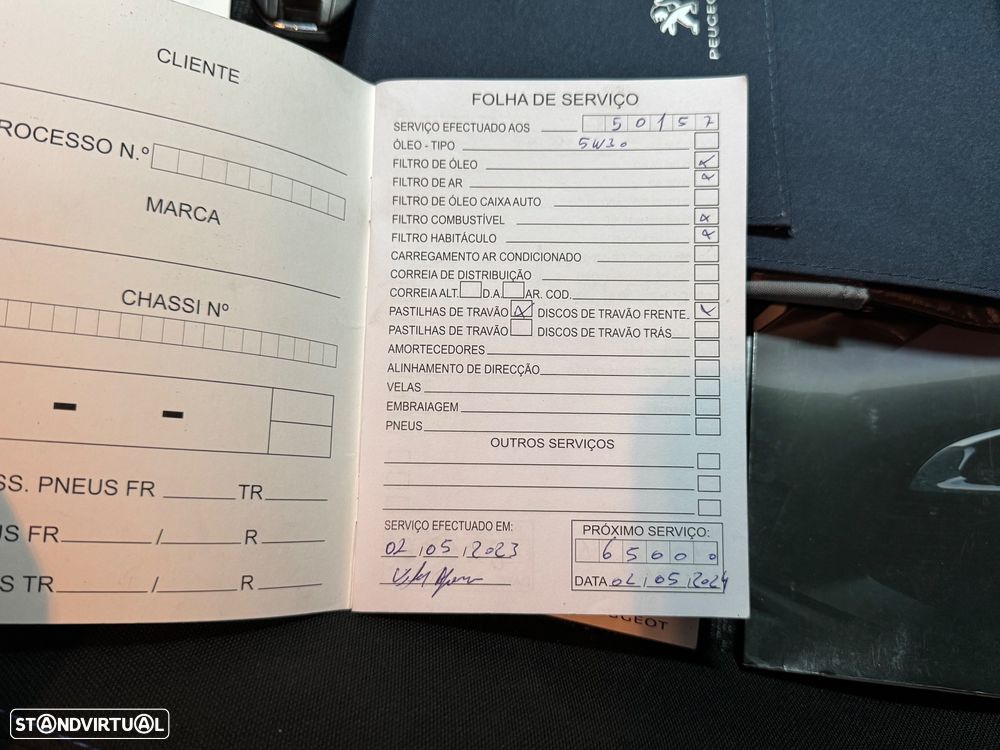 CLIENTE
ROCESSO N.º
MARCA
CHASSI Nº
- -
SS. PNEUS FR TR
US FR / R
S TR / R
PEUGEO
FOLHA DE SERVIÇO
SERVIÇO EFECTUADO AOS 50157
ÓLEO - TIPO 5W30
FILTRO DE ÓLEO
FILTRO DE AR
FILTRO DE ÓLEO CAIXA AUTO
FILTRO COMBUSTÍVEL
FILTRO HABITÁCULO
CARREGAMENTO AR CONDICIONADO
CORREIA DE DISTRIBUIÇÃO
CORREIA ALT. D.A. AR. COD.
PASTILHAS DE TRAVÃO DISCOS DE TRAVÃO FRENTE
PASTILHAS DE TRAVÃO DISCOS DE TRAVÃO TRÁS
AMORTECEDORES
ALINHAMENTO DE DIRECÇÃO
VELAS
EMBRAIAGEM
PNEUS
OUTROS SERVIÇOS
SERVIÇO EFECTUADO EM:
02, 05, 2023
PRÓXIMO SERVIÇO:
65000
DATA 02, 05, 2024
UGEOT
STANDVIRTUAL